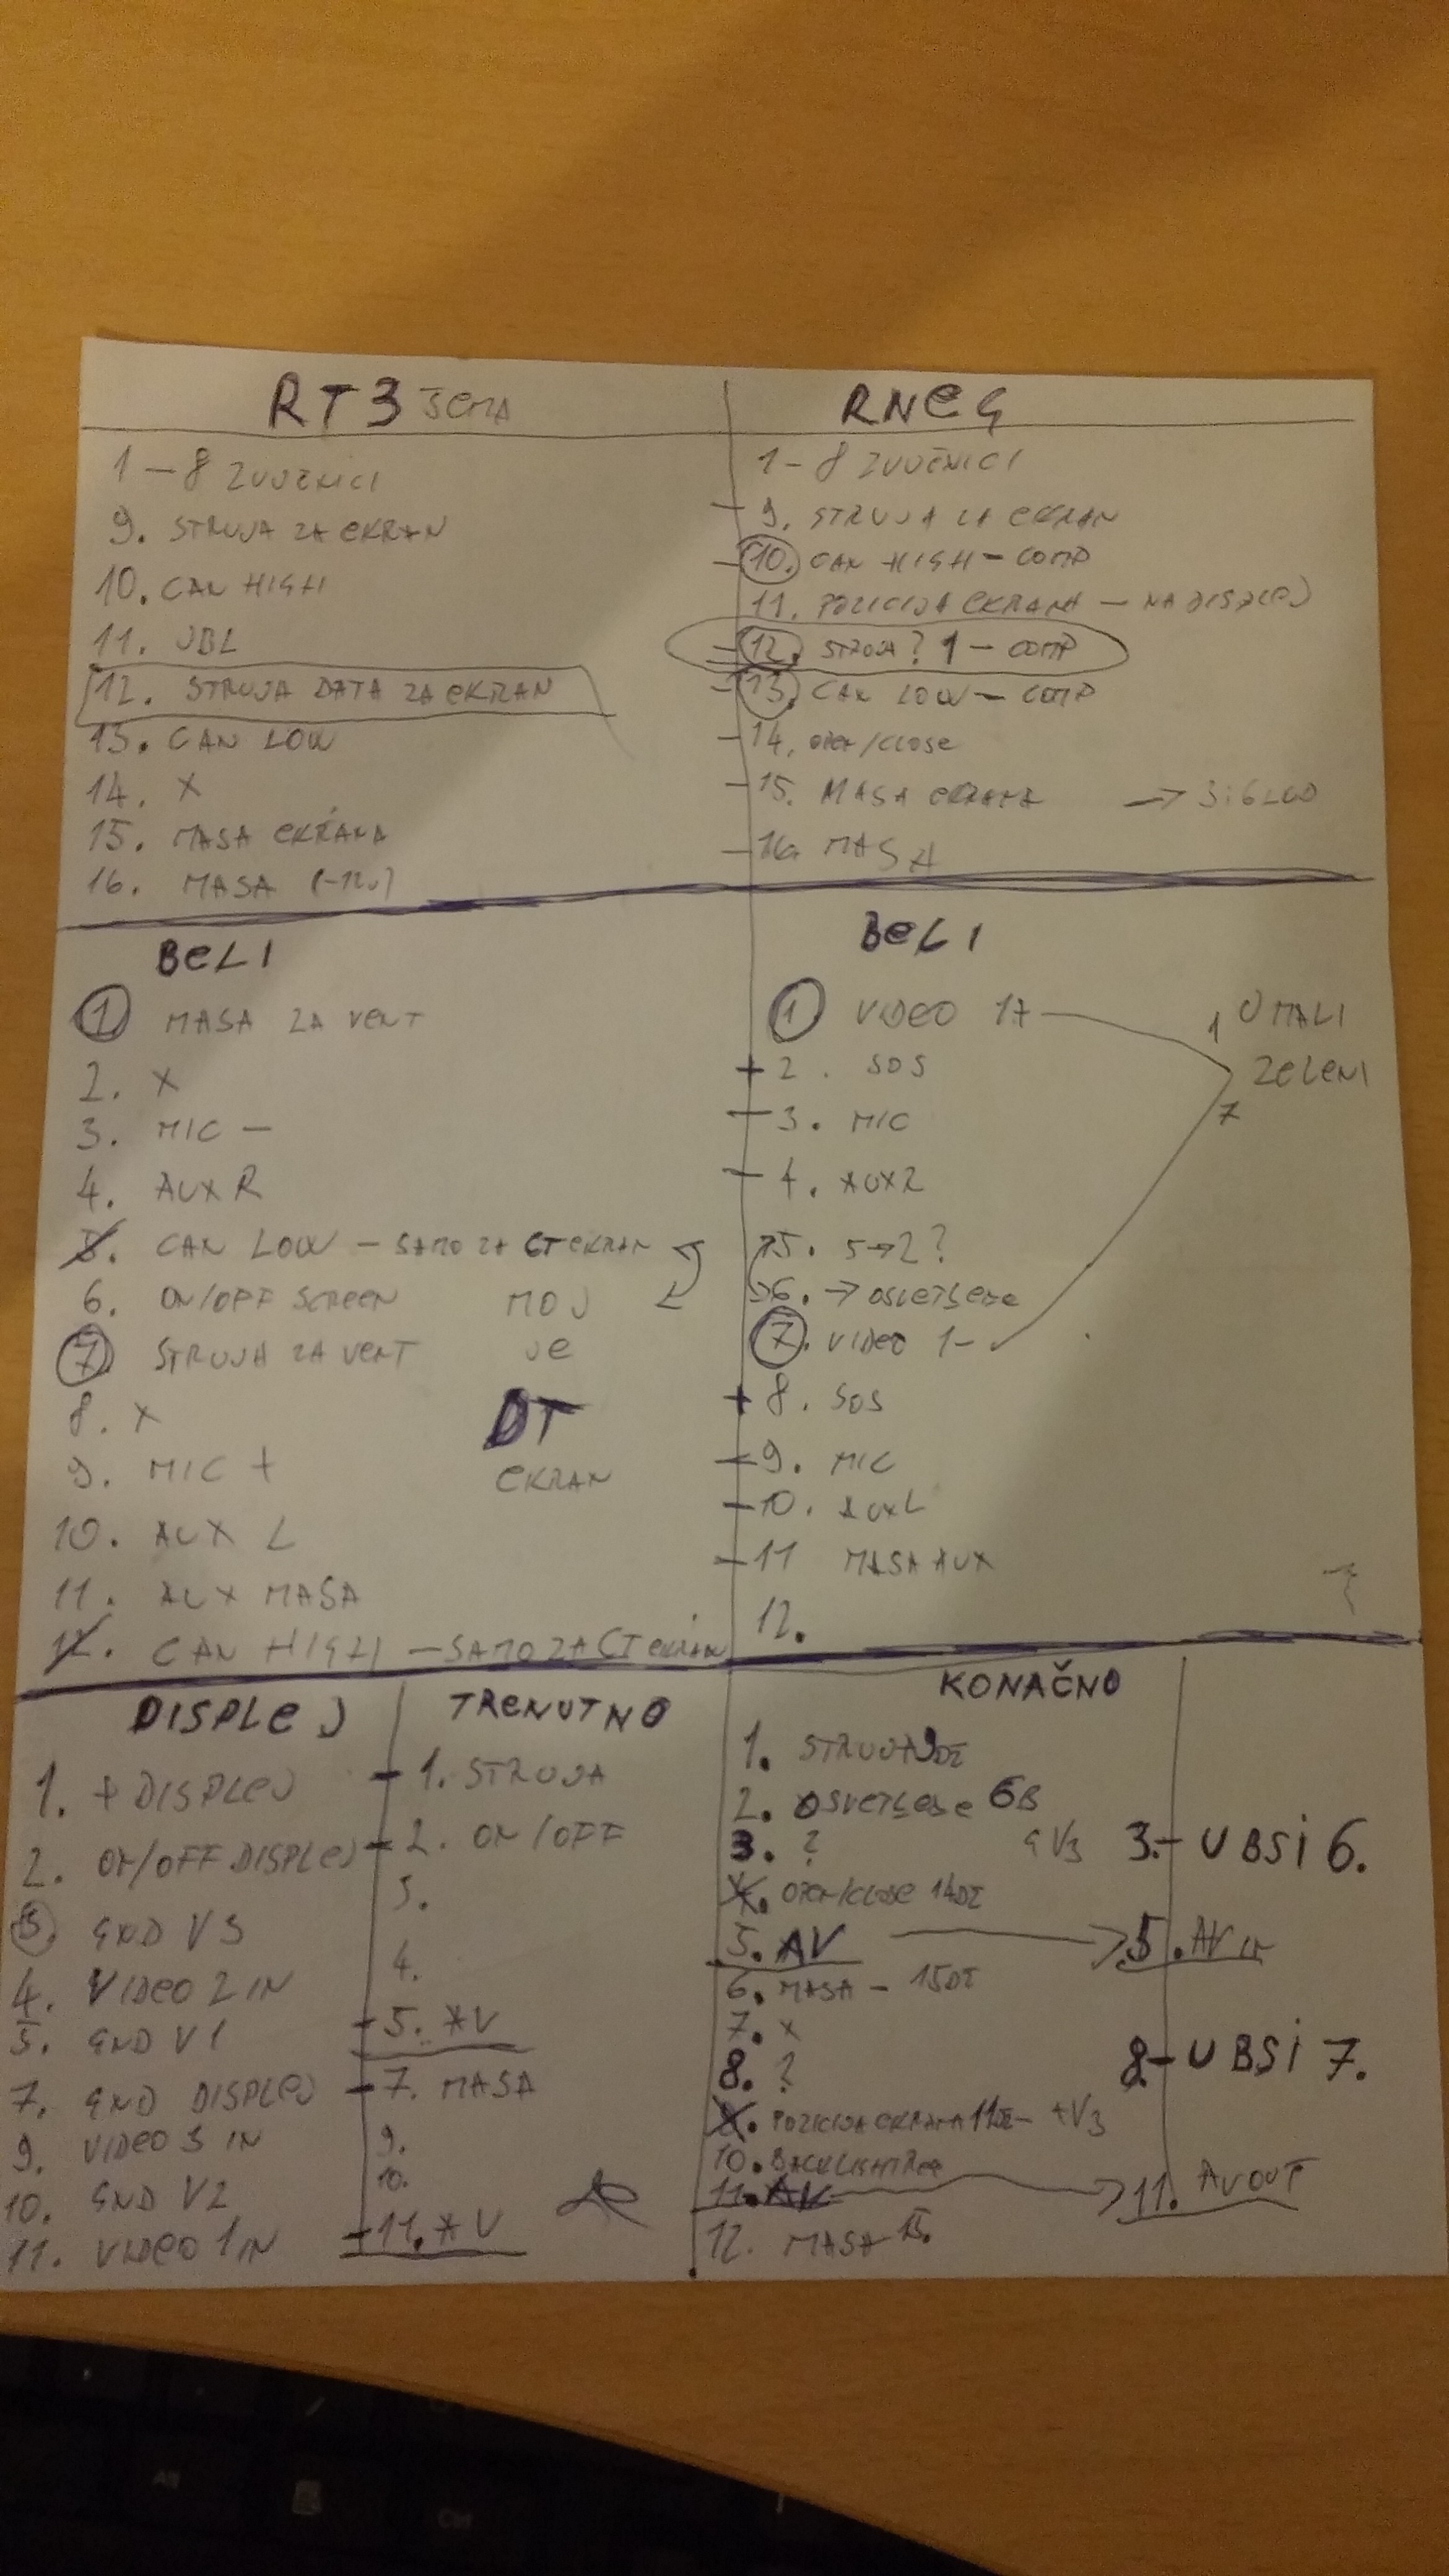 RT3 ŠEMA
1 – 8 ZVUČNICI
9. STRUJA ZA EKRAN
10. CAN HIGH
11. VBL
12. STRUJA DATA ZA EKRAN
13. CAN LOW
14. X
15. MASA EKRANA
16. MASA (-12V)
RNEG
1 - 8 ZVUČNICI
9. STRUJA ZA EKRAN
10. CAN HIGH – COMP
11. POZICIJA EKRANA – NA DISPLEJ
12. STRUJA? 1 – COMP
13. CAN LOW – COMP
14. OPEN/CLOSE
15. MASA EKRANA →
16. MASA
BELI
1 MASA ZA VENT
2. X
3. MIC –
4. AUX R
5. CAN LOW – SAMO ZA CT EKRAN
6. ON/OFF SCREEN MOJ
7. STRUJA ZA VENT JE
8. X DT
9. MIC + EKRAN
10. AUX L
11. AUX MASA
12. CAN HIGH – SAMO ZA CT EKRAN
BELI
1 VIDEO 1+ 1 U MALI
2. SOS ZELENI
3. MIC 7
4. AUX R
5. 5→2?
6. → OSVETLJENJE
7. VIDEO 1-
8. SOS
9. MIC
10. AUX L
11 MASA AUX
12.
DISPLEJ
1. + DISPLEJ
2. ON/OFF DISPLEJ
3. GND V3
4. VIDEO 2 IN
5. GND V1
7. GND DISPLEJ
9. VIDEO 3 IN
10. GND V2
11. VIDEO 1 IN
TRENUTNO
1. STRUJA
2. ON/OFF
3.
4.
5. AV
7. MASA
9.
10.
11. AV
KONAČNO
1. STRUJA 9DI
2. OSVETLJENJE 6B
3. ? GV3 3. – U BSI 6.
4. OPEN/CLOSE 14DI
5. AV → 5. AV IN
6. MASA – 15DI
7. X
8. ? 8 – U BSI 7.
9. POZICIJA EKRANA 11DI – +V3
10. BACKLIGHT
11. AV → 11. AV OUT
12. MASA